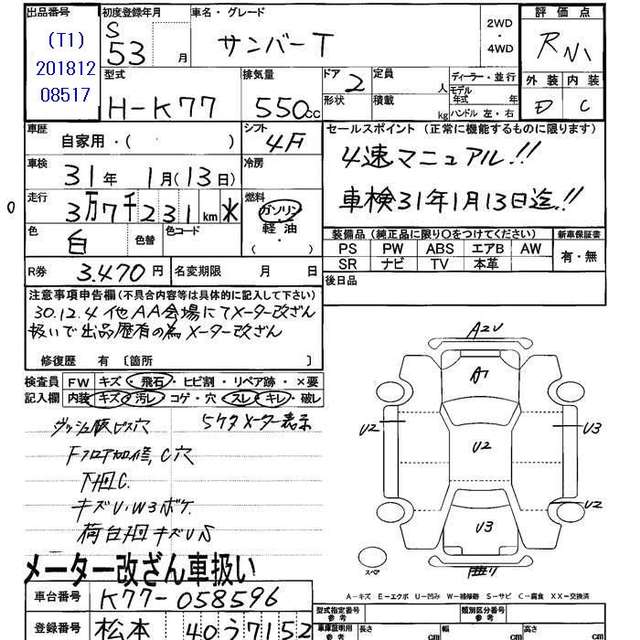 出品番号
(T1)
201812
08517
初度登録年月
S 53 月
車名・グレード
サンバーT
2WD
・
4WD
評価点
RN1
外装 内装
D C
型式
H-K77
排気量
550cc
ドア 2
形状
定員 人
積載 kg
ディーラー・並行
モデル年式 年
ハンドル 左・右
車歴
自家用・( )
シフト
4F
セールスポイント (正常に機能するものに限ります)
4速マニュアル!!
車検31年1月13日迄!!
車検
31年 1月(13日)
冷房
走行
3万7千231km
燃料
ガソリン
軽油
・( )
色
白
色替
色コード
装備品(純正品に限り○をつけてください)
新車保証書
PS PW ABS エアB AW
有・無
SR ナビ TV 本革
R券
3.470円
名変期限 月 日
後日品
注意事項申告欄(不具合内容等は具体的に記入して下さい)
30.12.4 他AA会場にてメーター改ざん
扱いで出品歴有の為メーター改ざん
修復歴 有 〔箇所 〕
検査員 FW キズ・飛石・ヒビ割・リペア跡・×要
記入欄 内装 キズ・汚レ・コゲ・穴・スレ・キレ・破レ
ダッシュ板ビス穴
5ケタメーター表示
Fフロア加修、C穴
下回C
キズU・W3ボケ
荷台回キズUS
メーター改ざん車扱い
車台番号
K77-058596
登録番号
松本 40う7152
A2U
A1
U2
U2
U3
U2
U3
スペア
A-キズ E-エクボ U-凹み W-補修跡 S-サビ C-腐食 XX-交換済
型式指定番号 参考
類別区分番号 参考
車庫証明用 参考
長さ cm
幅 cm
高さ cm